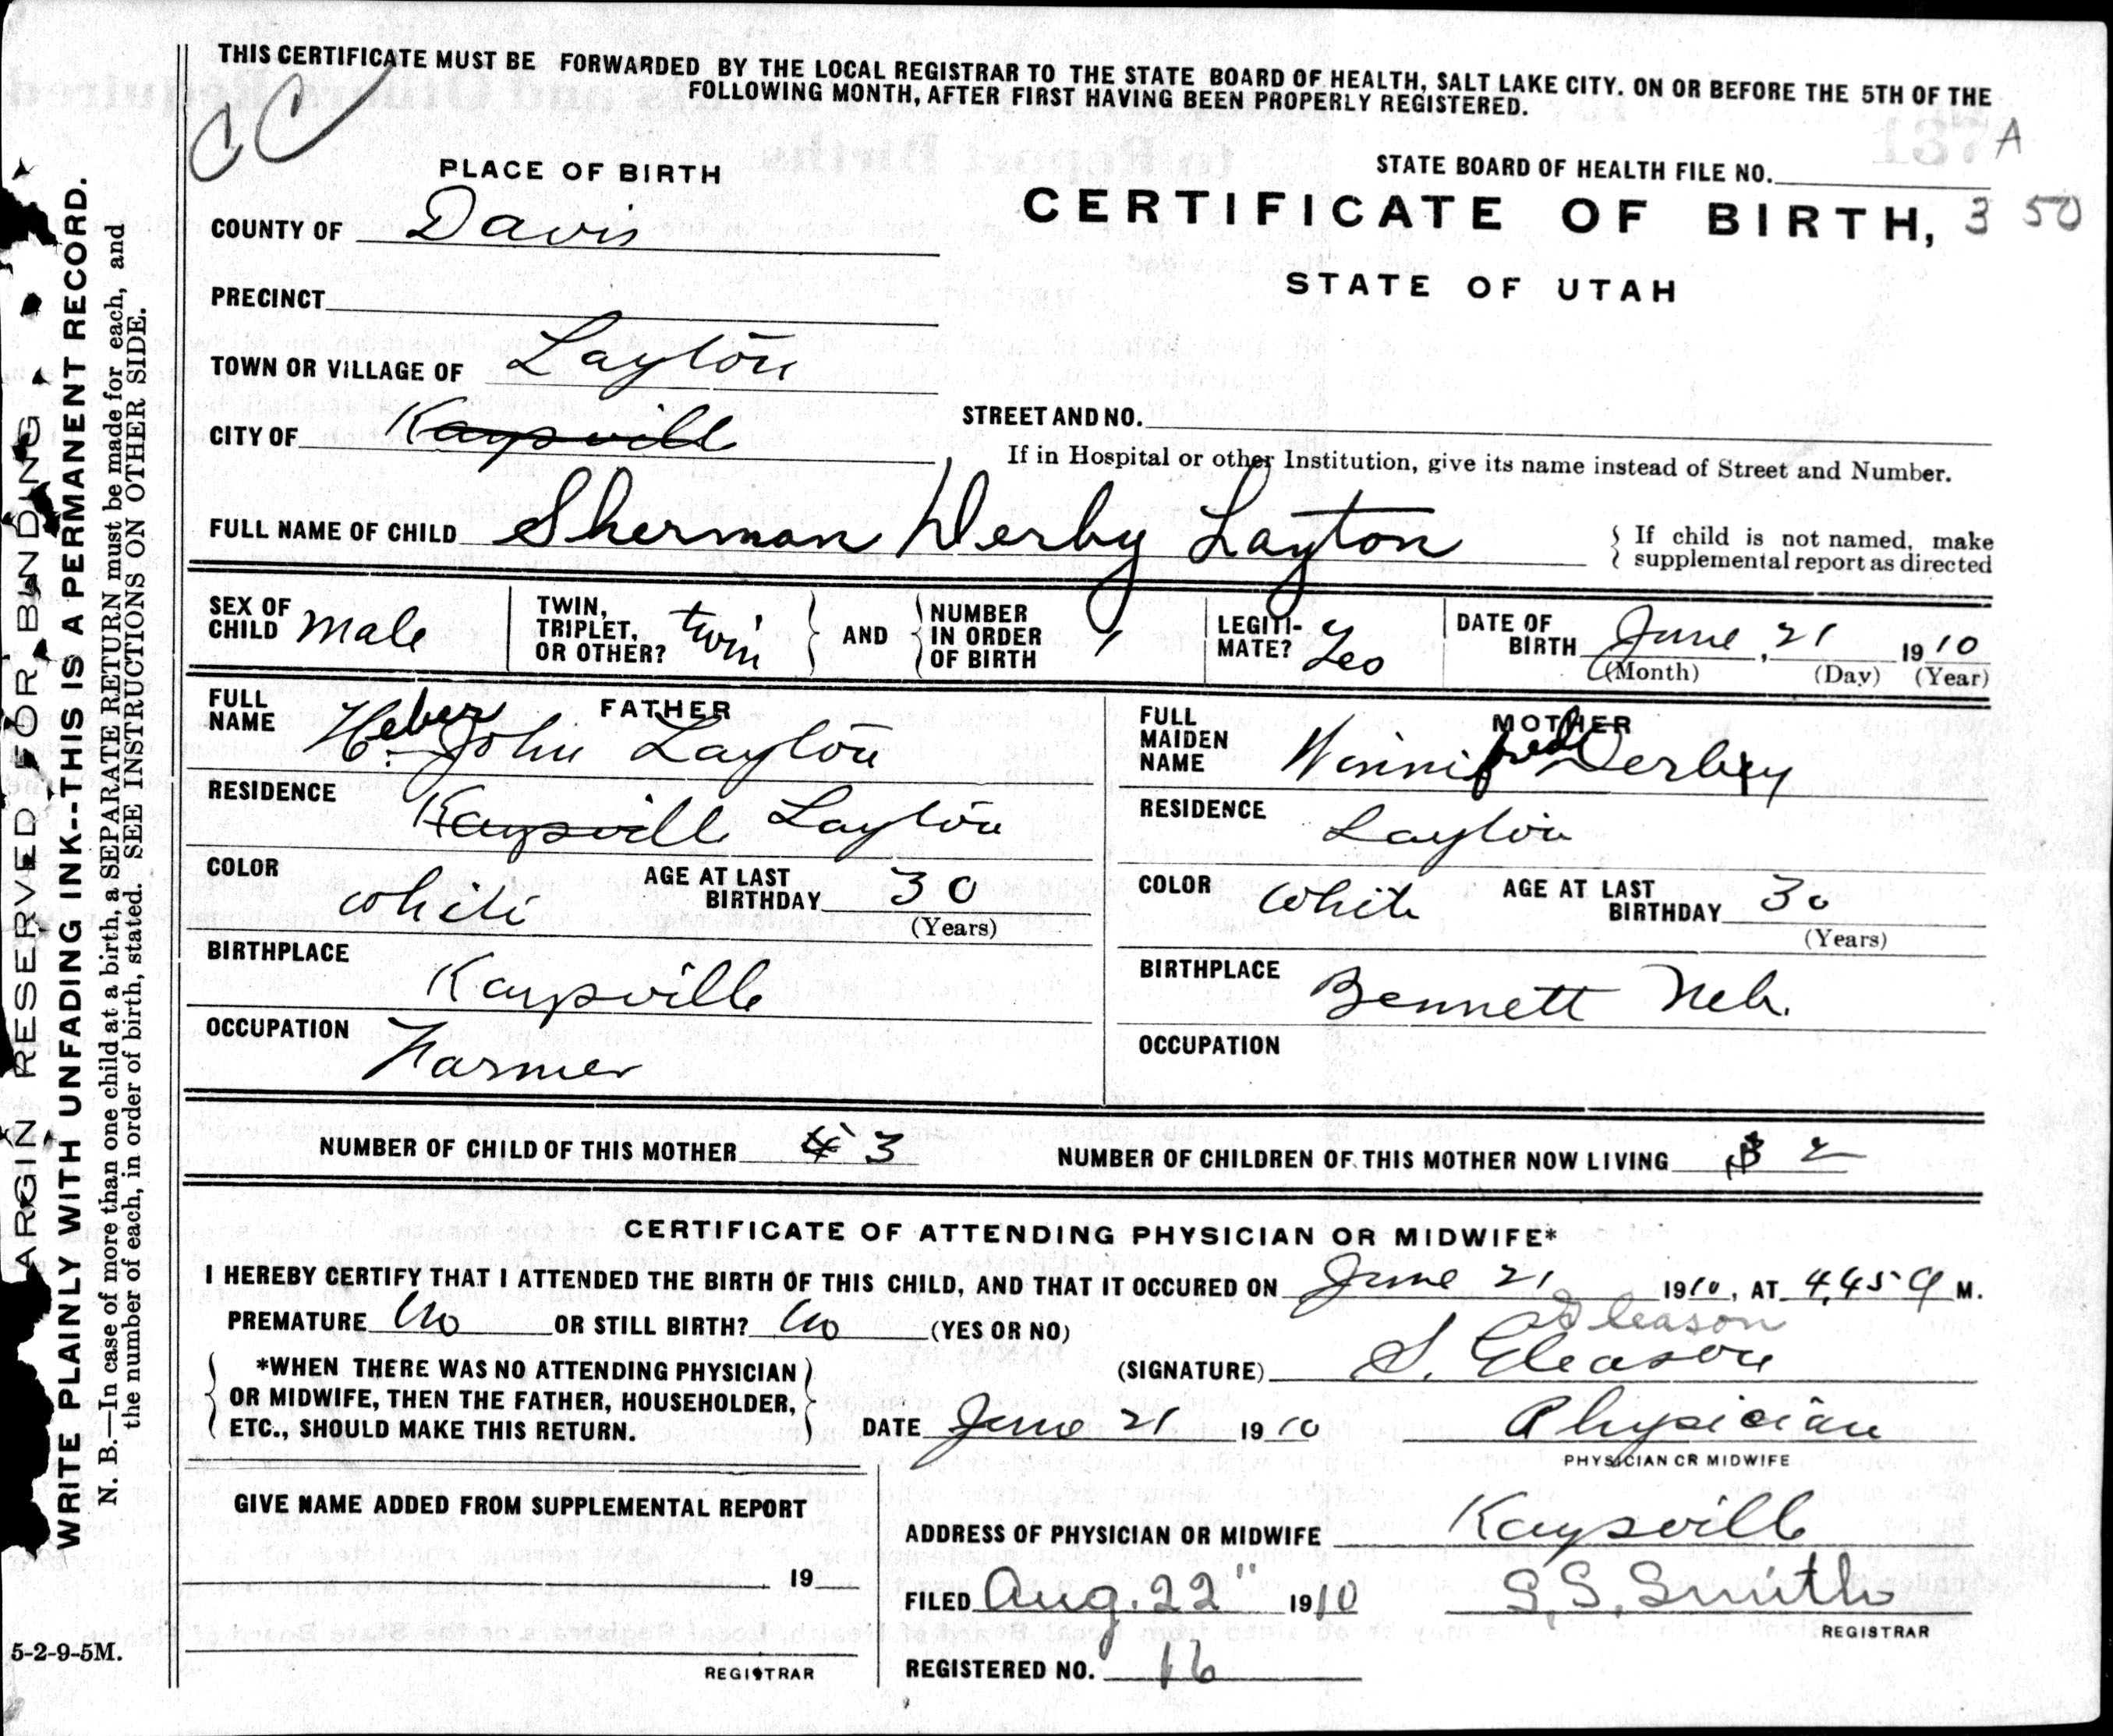 THIS CERTIFICATE MUST BE FORWARDED BY THE LOCAL REGISTRAR TO THE STATE BOARD OF HEALTH, SALT LAKE CITY. ON OR BEFORE THE 5TH OF THE
FOLLOWING MONTH, AFTER FIRST HAVING BEEN PROPERLY REGISTERED.
CC
A
PLACE OF BIRTH
STATE BOARD OF HEALTH FILE NO.
CERTIFICATE OF BIRTH, 3 50
STATE OF UTAH
COUNTY OF Davis
PRECINCT
TOWN OR VILLAGE OF Layton
CITY OF Kaysville
STREET AND NO.
If in Hospital or other Institution, give its name instead of Street and Number.
FULL NAME OF CHILD Sherman Derby Layton
{ If child is not named, make
supplemental report as directed
SEX OF CHILD male
TWIN, TRIPLET, OR OTHER? twin
AND
NUMBER IN ORDER OF BIRTH 1
LEGITI-MATE? Yes
DATE OF BIRTH June, 21 1910
(Month) (Day) (Year)
FATHER
FULL NAME Heber John Layton
RESIDENCE
Kaysville Layton
COLOR white
AGE AT LAST BIRTHDAY 30
(Years)
BIRTHPLACE
Kaysville
OCCUPATION
Farmer
MOTHER
FULL MAIDEN NAME Winnifred Derby
RESIDENCE
Layton
COLOR white
AGE AT LAST BIRTHDAY 30
(Years)
BIRTHPLACE
Bennett Neb.
OCCUPATION
NUMBER OF CHILD OF THIS MOTHER 3
NUMBER OF CHILDREN OF THIS MOTHER NOW LIVING 2
CERTIFICATE OF ATTENDING PHYSICIAN OR MIDWIFE*
I HEREBY CERTIFY THAT I ATTENDED THE BIRTH OF THIS CHILD, AND THAT IT OCCURED ON June 21 1910, AT 4,45 a M.
PREMATURE No OR STILL BIRTH? No (YES OR NO)
Gleason
(SIGNATURE) S. Gleason
*WHEN THERE WAS NO ATTENDING PHYSICIAN
OR MIDWIFE, THEN THE FATHER, HOUSEHOLDER,
ETC., SHOULD MAKE THIS RETURN.
DATE June 21 1910
Physician
PHYSICIAN OR MIDWIFE
GIVE NAME ADDED FROM SUPPLEMENTAL REPORT
19
REGISTRAR
ADDRESS OF PHYSICIAN OR MIDWIFE Kaysville
FILED Aug. 22" 1910
S. S. Smith
REGISTRAR
REGISTERED NO. 16
5-2-9-5M.
MARGIN RESERVED FOR BINDING
WRITE PLAINLY WITH UNFADING INK--THIS IS A PERMANENT RECORD.
N. B.—In case of more than one child at a birth, a SEPARATE RETURN must be made for each, and
the number of each, in order of birth, stated. SEE INSTRUCTIONS ON OTHER SIDE.